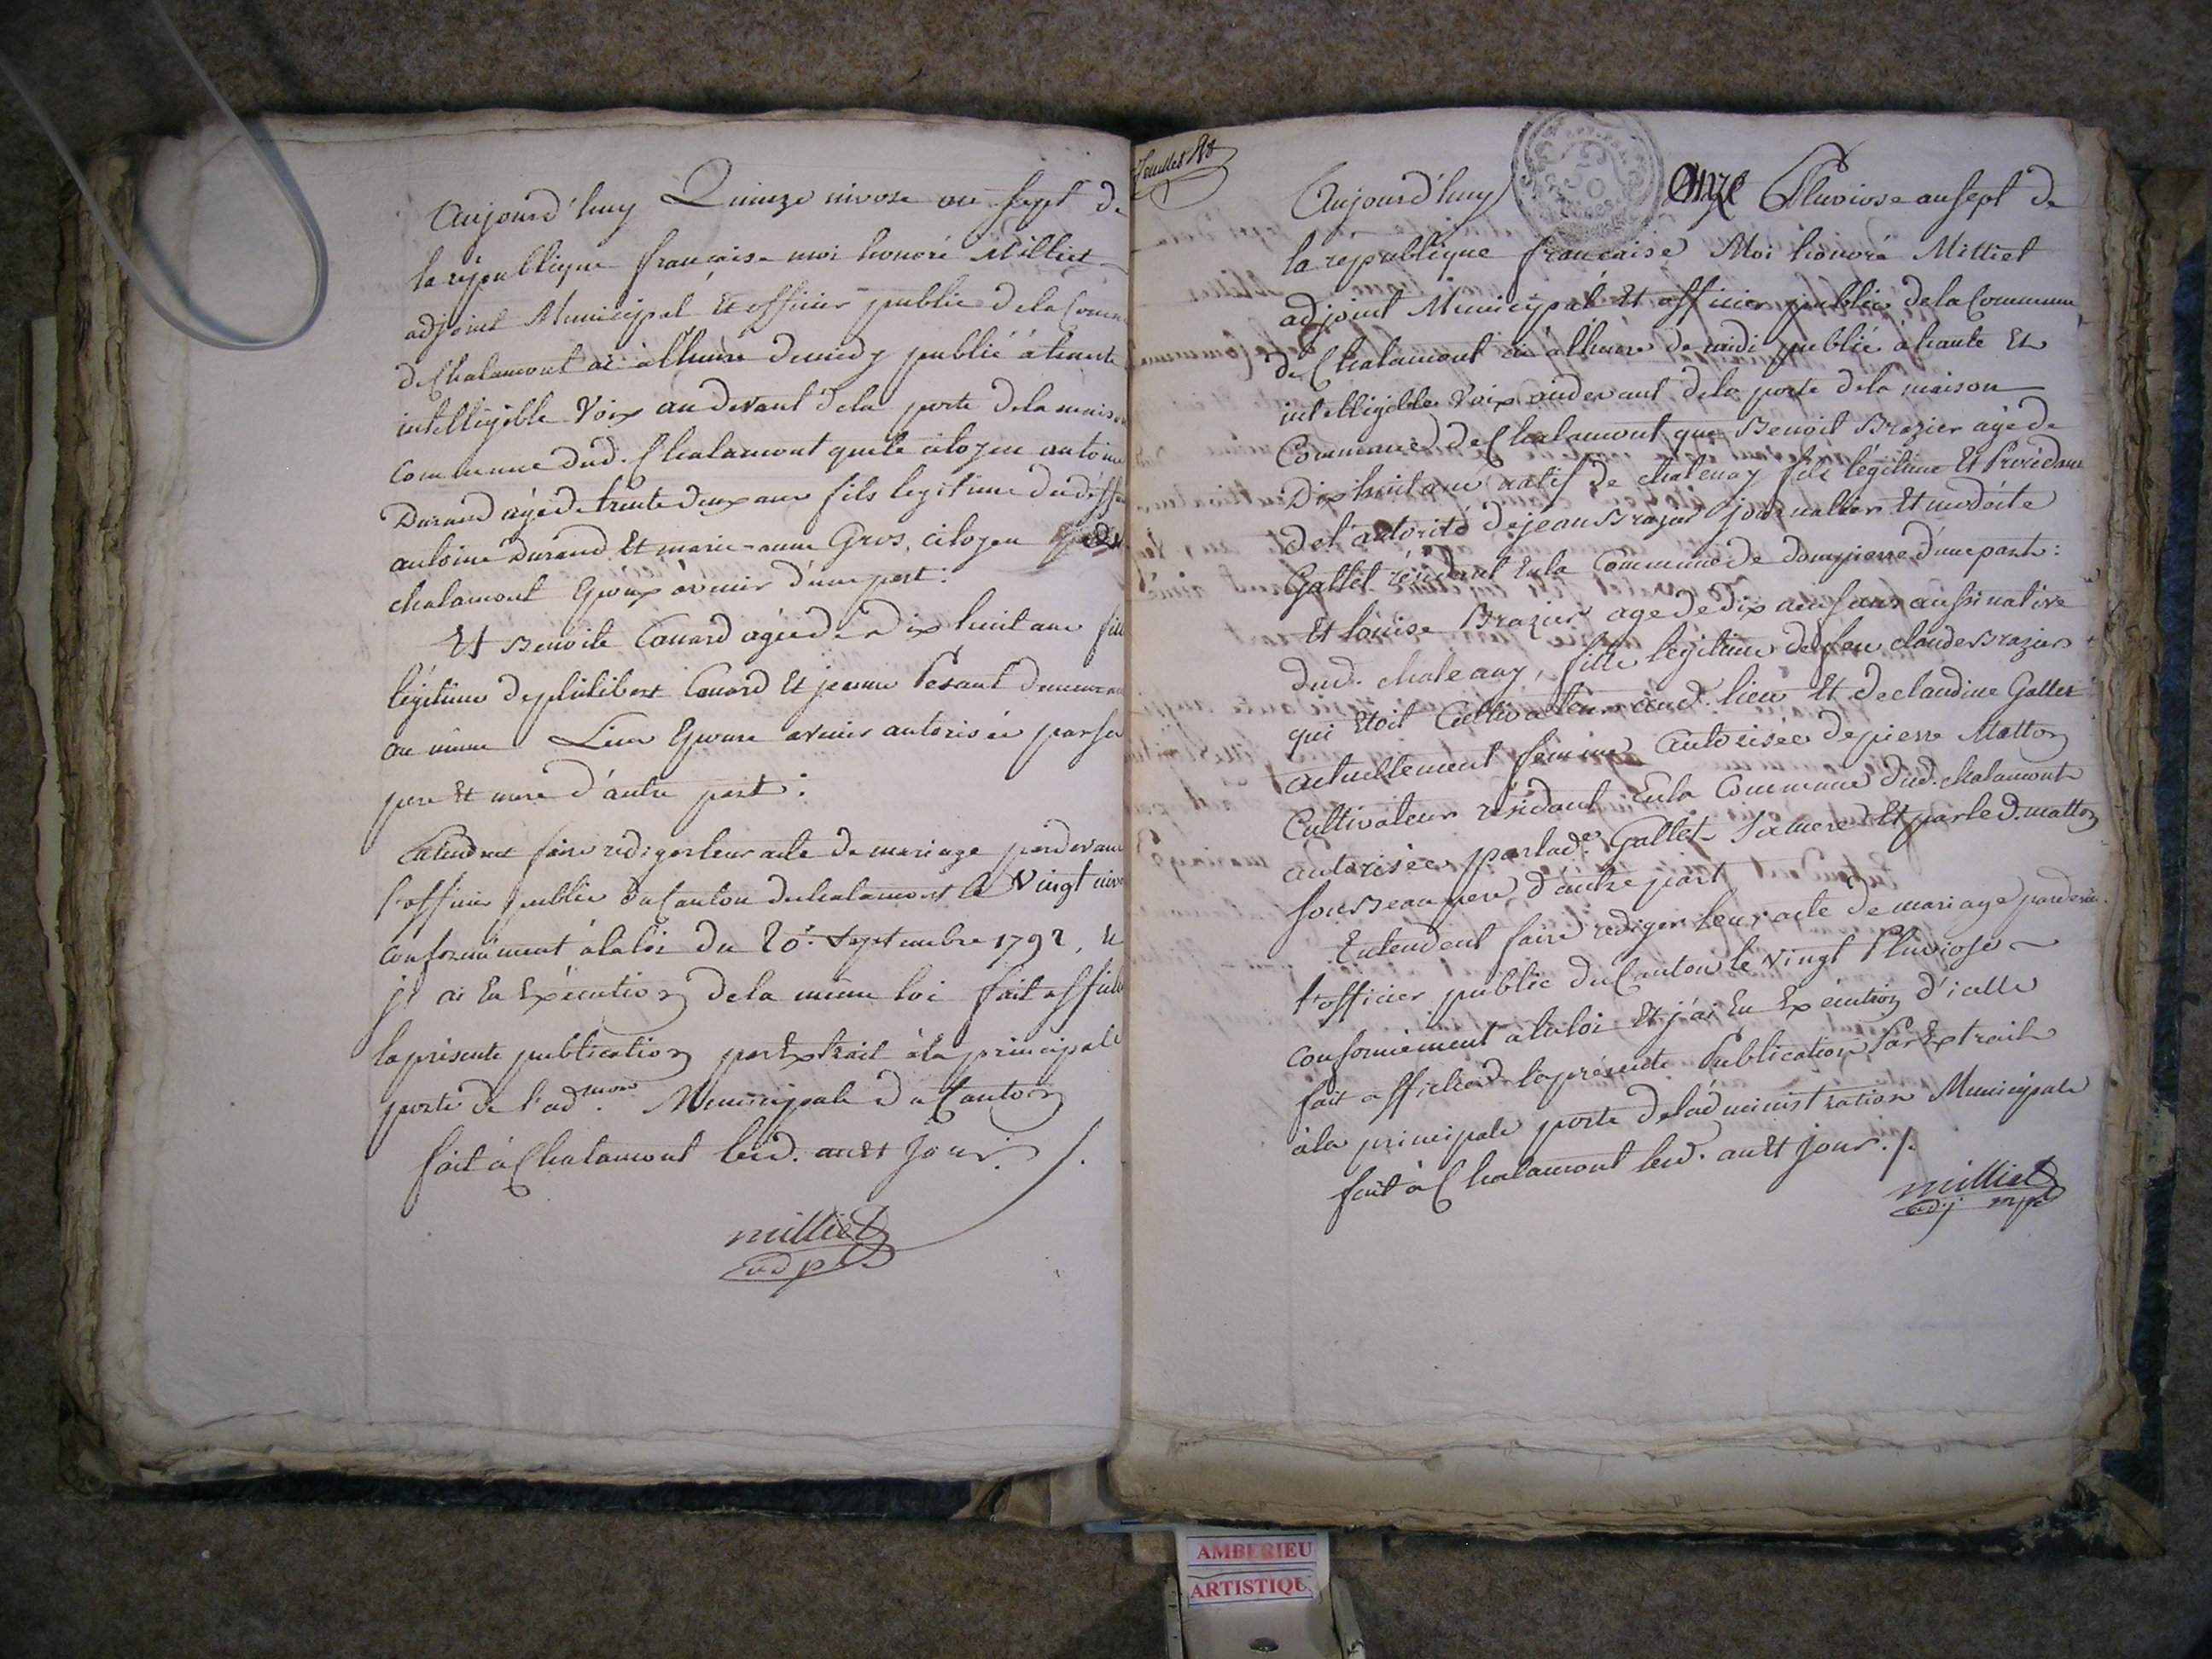 Aujourd'huy Quinze nivose an sept de
la république française moi honoré Milliet
adjoint Municipal Et officier public de la Comm
de Chalamont ai à lheure de midy publié à haute
intelligible Voix au devant de la porte de la mais
Commune dud. Chalamont que le citoyen antoine
Durand agé de trente deux ans fils legitime du def
antoine Durand Et marie-anne Gros, citoyen de
chalamont Epoux avenir d'une part:
Et Benoite Couard agée de Dix huit ans fille
légitime de philibert Couard Et jeanne Pesant demeuran
au même Lieu Epouse avenir autorisée par ses
pere Et mere d'autre part:
Entendent faire rediger leur acte de mariage pardevan
l'officier public du Canton de chalamont le Vingt nivo
conformément à la loi du 20e. Septembre 1792, Et
j'ai En Exécution de la même loi fait affiche
la présente publication par Extrait à la principale
porte de l'admon. Municipale du Canton
fait à Chalamont lesd. an Et Jour ./.
milliet
adj
feuillet
Aujourd'huy Onze Pluviose an sept de
la république française Moi honoré Milliet
adjoint Municipal Et officier public de la Commune
de Chalamont ai à lheure de midi publié à haute Et
intelligible Voix au devant de la porte de la maison
Commune de Chalamont que Benoit Brazier agé de
Dix huit ans natif de chatenay fils légitime Et Procédant
de l'autorité de jean Brazier journallier Et
Gallet résidant En la Commune de dompierre d'une part:
Et louise Brazier age de dix neuf ans aussi native
dud. chatenay, fille légitime de feu claude Brazier
qui Etoit Cultivateur aud. lieu Et de claudine Gallet
actuellement femme autorisée de pierre Matton
Cultivateur résidant En la Commune dud. chalamont
autorisée par lade. Gallet sa mere Et par led. matton
son Beau pere d'autre part
Entendent faire rediger leur acte de mariage pardevan.
l'officier public du Canton le vingt Pluviose
conformément à la loi Et j'ai En Exécution d'icelle
fait afficher la présente Publication Par Extrait
à la principale porte de l'administration Municipale
fait à Chalamont lesd. an Et Jour ./.
milliet
adj mpl
AMBERIEU
ARTISTIQU